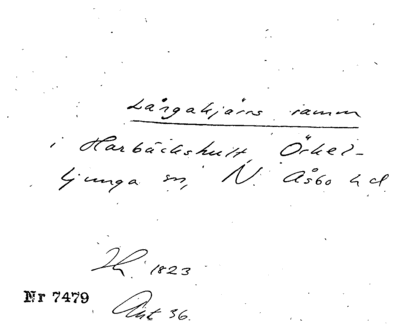 Långakjärrs ramm
i Harbäckshult, Örkel-
ljunga sn, N. Åsbo hd
1823
Nr 7479
Ant 36.